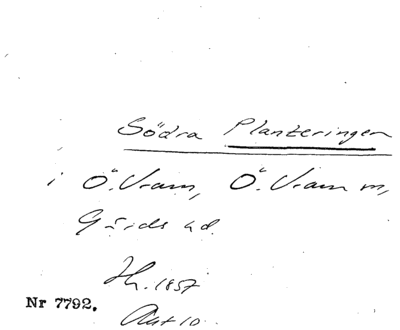 Södra Planteringen
i Ö. Vram, Ö. Vram m,
Gärds hd.
Hr. 1857
Nr 7792.
Akt 10